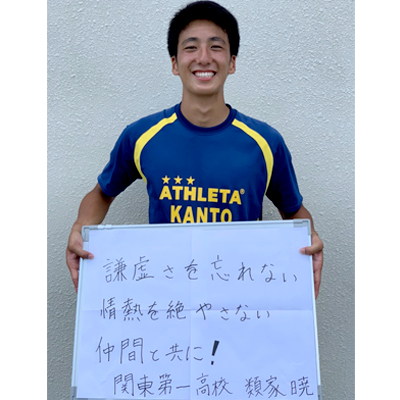 ATHLETA®
KANTO
謙虚さを忘れない
情熱を絶やさない
仲間と共に!
関東第一高校 類家 暁